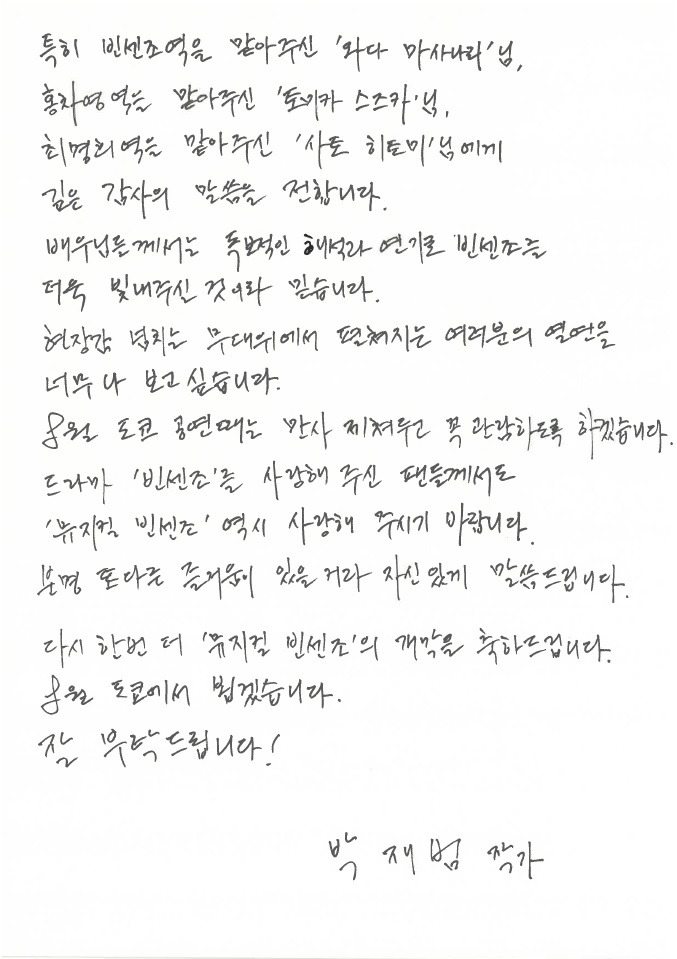 특히 빈센조역을 맡아주신 '와다 마사나리'님,
홍차영역을 맡아주신 '토미카 스즈카'님,
최명희역을 맡아주신 '사토 히토미'님에게
깊은 감사의 말씀을 전합니다.
배우님들께서는 독보적인 해석과 연기로 빈센조를
더욱 빛내주신 것이라 믿습니다.
현장감 넘치는 무대위에서 펼쳐지는 여러분의 열연을
너무나 보고싶습니다.
8월 도쿄 공연때는 만사 제쳐두고 꼭 관람하도록 하겠습니다.
드라마 '빈센조'를 사랑해 주신 팬들께서도
'뮤지컬 빈센조' 역시 사랑해 주시기 바랍니다.
분명 또다른 즐거움이 있을거라 자신있게 말씀드립니다.
다시 한번 더 '뮤지컬 빈센조'의 개막을 축하드립니다.
8월 도쿄에서 뵙겠습니다.
잘 부탁드립니다!
박재범 작가